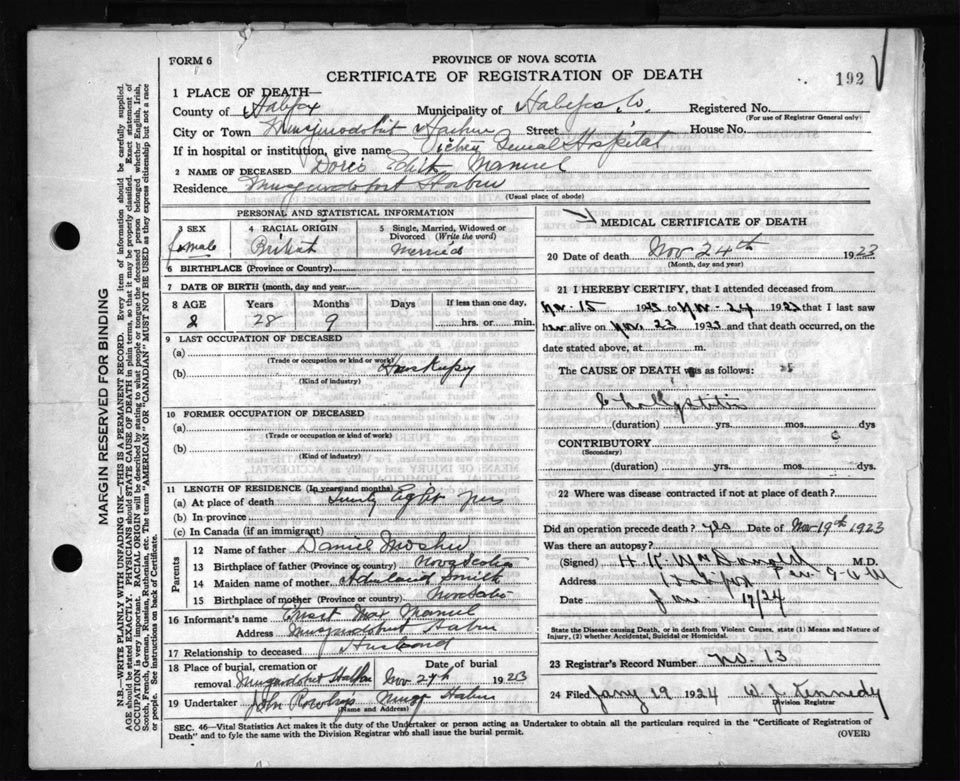 FORM 6
PROVINCE OF NOVA SCOTIA
CERTIFICATE OF REGISTRATION OF DEATH
192
1 PLACE OF DEATH—
County of Halifax Municipality of Halifax Co. Registered No.
(For use of Registrar General only)
City or Town Musquodobit Harbor Street House No.
If in hospital or institution, give name General Hospital
2 NAME OF DECEASED Doris Manuel
Residence Musquodobit Harbor
(Usual place of abode)
PERSONAL AND STATISTICAL INFORMATION
3 SEX
female
4 RACIAL ORIGIN
British
5 Single, Married, Widowed or Divorced (Write the word)
Married
6 BIRTHPLACE (Province or Country)
7 DATE OF BIRTH (month, day and year)
8 AGE Years Months Days If less than one day,
28 9 hrs. or min.
9 LAST OCCUPATION OF DECEASED
(a)
(Trade or occupation or kind of work)
(b) House Keeping
(Kind of industry)
10 FORMER OCCUPATION OF DECEASED
(a)
(Trade or occupation or kind of work)
(b)
(Kind of industry)
11 LENGTH OF RESIDENCE (In years and months)
(a) At place of death Twenty Eight yrs
(b) In province
(c) In Canada (if an immigrant)
Parents
12 Name of father Daniel Mosher
13 Birthplace of father (Province or country) Nova Scotia
14 Maiden name of mother Smith
15 Birthplace of mother (Province or country)
16 Informant's name Max Manuel
Address Musquodobit Harbor
17 Relationship to deceased Husband
18 Place of burial, cremation or removal Musquodobit Harbor
Date of burial
Nov 27th 1923
19 Undertaker John Harbor
(Name and Address)
MEDICAL CERTIFICATE OF DEATH
20 Date of death Nov 24th 1923
(Month, day and year)
21 I HEREBY CERTIFY, that I attended deceased from
Nov-15 1923 to Nov-24 1923 that I last saw
her alive on Nov. 23 1923 and that death occurred, on the
date stated above, at m.
The CAUSE OF DEATH was as follows:
(duration) yrs. mos. dys
CONTRIBUTORY
(Secondary)
(duration) yrs. mos. dys.
22 Where was disease contracted if not at place of death?
Did an operation precede death? yes Date of Nov 19th 1923
Was there an autopsy?
(Signed) H. K. McDonald M.D.
Address
Date Jan 19/24
State the Disease causing Death, or in death from Violent Causes, state (1) Means and Nature of Injury, (2) whether Accidental, Suicidal or Homicidal.
23 Registrar's Record Number No. 13
24 Filed Jany 19 1924 W. J. Kennedy
Division Registrar
SEC. 46—Vital Statistics Act makes it the duty of the Undertaker or person acting as Undertaker to obtain all the particulars required in the "Certificate of Registration of
Death" and to fyle the same with the Division Registrar who shall issue the burial permit.
(OVER)
MARGIN RESERVED FOR BINDING
N.B.—WRITE PLAINLY WITH UNFADING INK—THIS IS A PERMANENT RECORD. Every item of information should be carefully supplied.
AGE should be stated EXACTLY. PHYSICIANS should STATE CAUSE OF DEATH in plain terms, so that it may be properly classified. Exact statement of
OCCUPATION is very important. RACIAL ORIGIN will be described by stating to what people or tongue the deceased person belonged whether English, Irish,
Scotch, French, German, Russian, Ruthenian, etc. The terms "AMERICAN" OR "CANADIAN" MUST NOT BE USED as they express citizenship but not a race
or people. See instructions on back of Certificate.